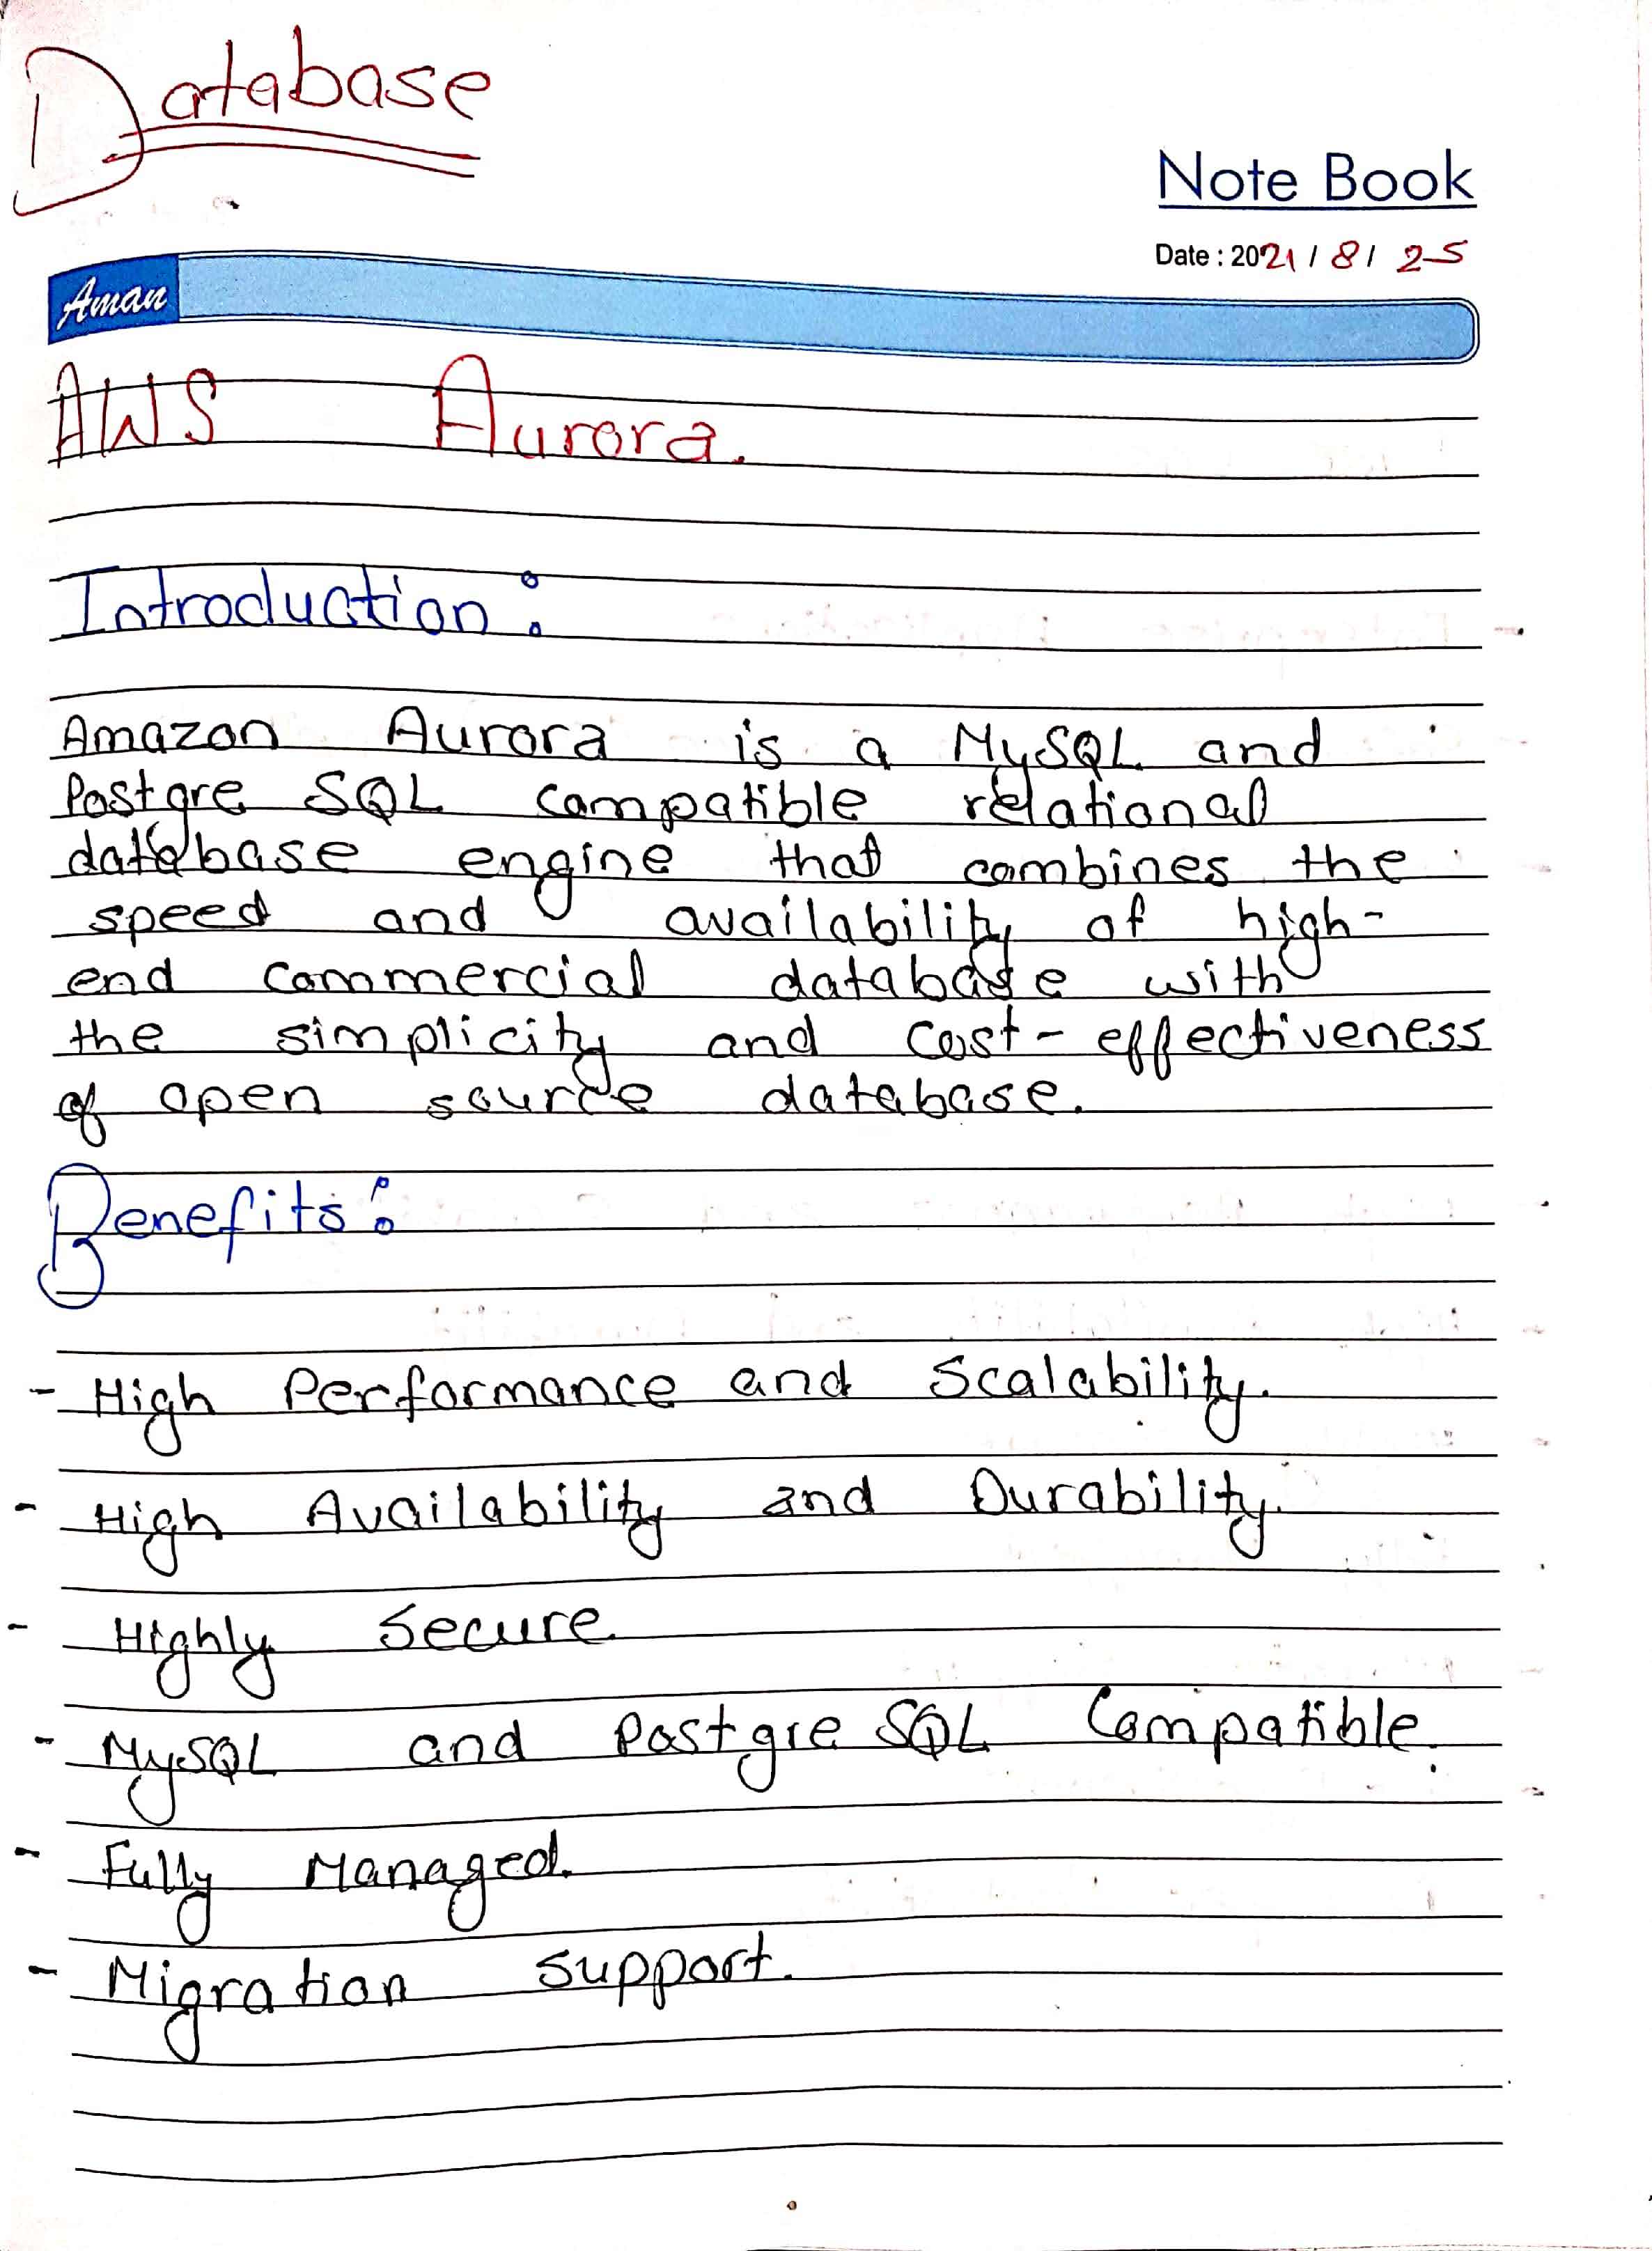 Database
Note Book
Date : 2021 / 8 / 25
Aman
AWS Aurora.
Introduction :
Amazon Aurora is a MySQL and
Postgre SQL compatible relational
database engine that combines the
speed and availability of high-
end commercial database with
the simplicity and cost-effectiveness
of open source database.
Benefits :
- High Performance and Scalability.
- High Availability and Durability.
- Highly Secure
- MySQL and Postgre SQL Compatible.
- Fully Managed.
- Migration Support.